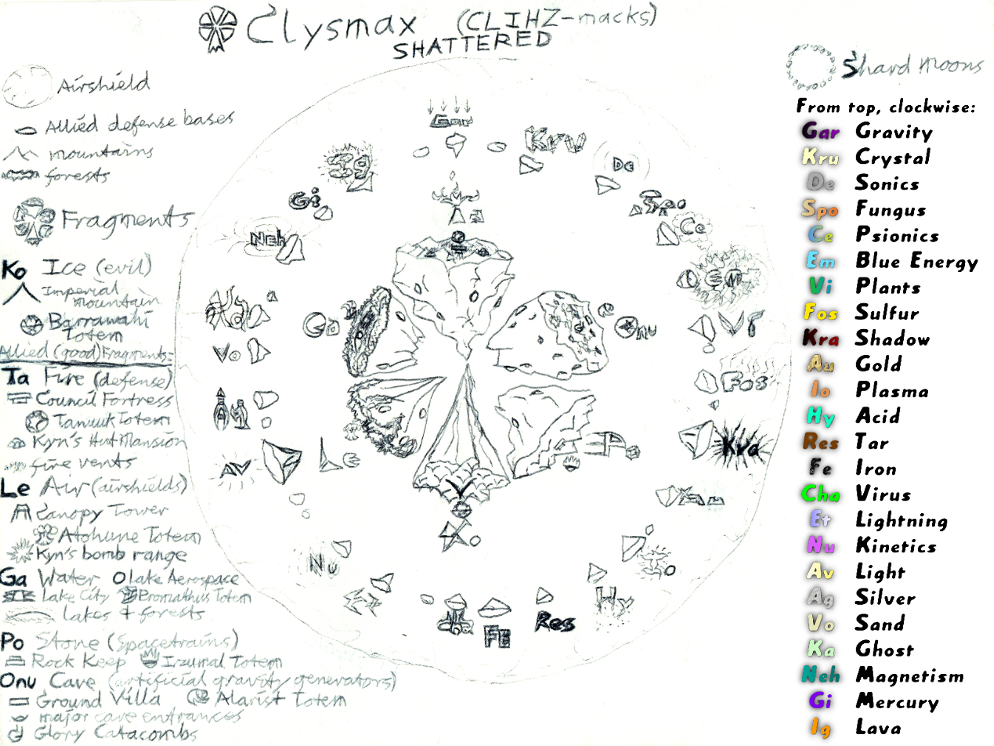 Clysmax (CLIHZ-macks)
SHATTERED
Airshield
Allied defense bases
mountains
forests
Fragments
Ko Ice (evil)
Imperial
mountain
Barrawahi
Totem
Allied (good) Fragments:
Ta Fire (defense)
Council Fortress
Tanuuk Totem
Kyn's Hut Mansion
fire vents
Le Air (airshields)
Canopy Tower
Atohune Totem
Kyn's bomb range
Ga Water O lake Aerospace
Lake City Promathus Totem
lakes & forests
Po Stone (Spacetrains)
Rock Keep Irzumal Totem
Onu Cave (artificial gravity generators)
Ground Villa Alarist Totem
major cave entrances
Glory Catacombs
Gar
Kru
De
Spo
Ce
Em
Vi
Fos
Kra
Hy
Res
Fe
Nu
Av
Vo
Neh
Gi
Ig
Ga
Onu
Le
Shard moons
From top, clockwise:
Gar Gravity
Kru Crystal
De Sonics
Spo Fungus
Ce Psionics
Em Blue Energy
Vi Plants
Fos Sulfur
Kra Shadow
Au Gold
Io Plasma
Hy Acid
Res Tar
Fe Iron
Cha Virus
Et Lightning
Nu Kinetics
Av Light
Ag Silver
Vo Sand
Ka Ghost
Neh Magnetism
Gi Mercury
Ig Lava